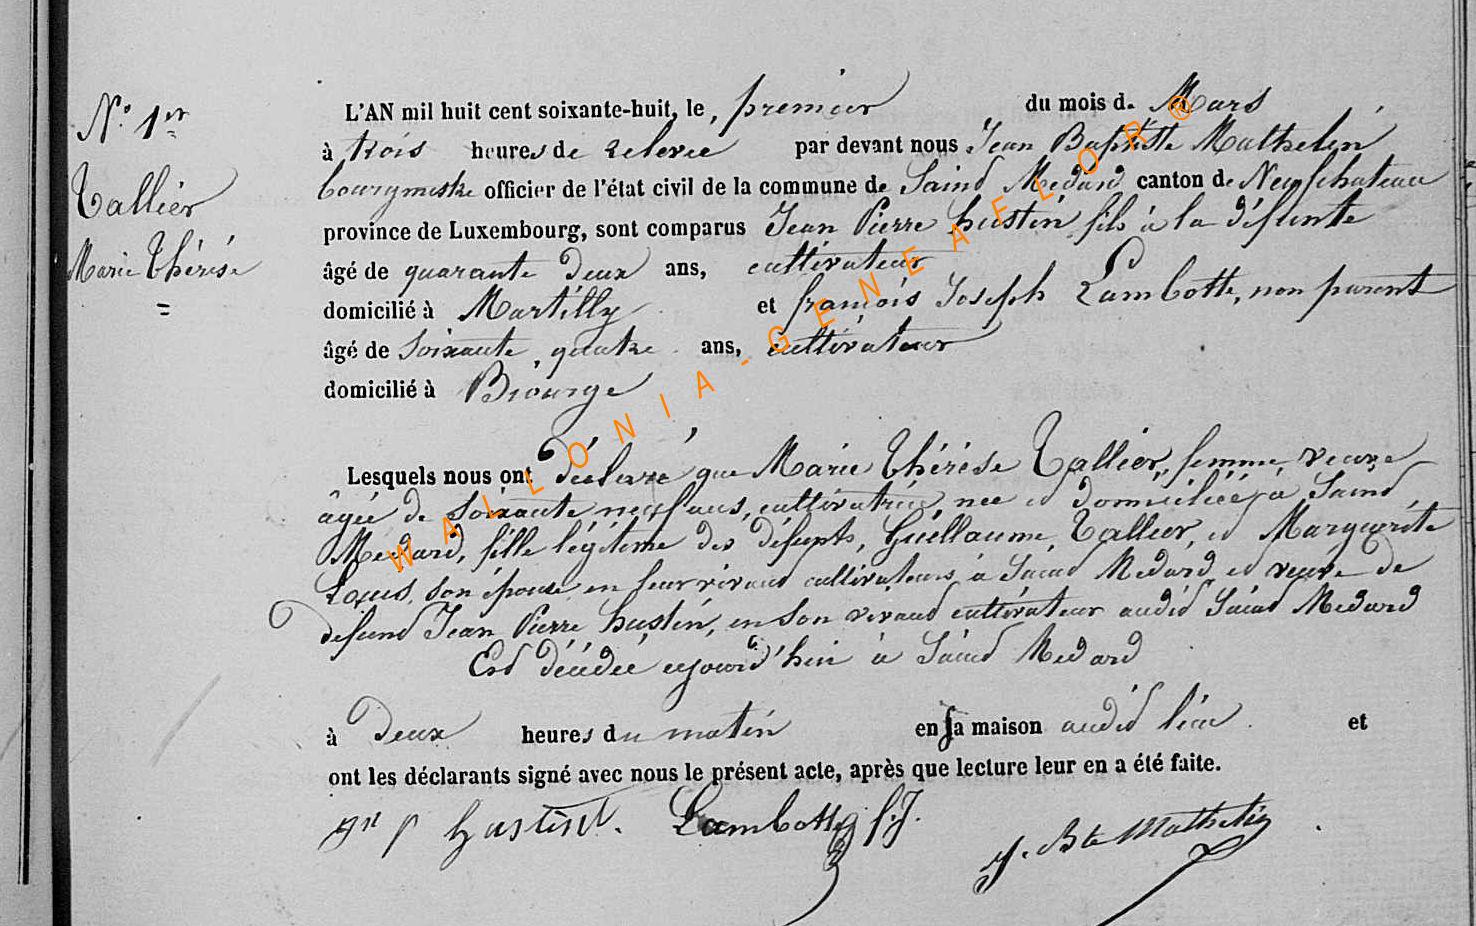 N.° 1er
Tallier
Marie Thérèse
L'AN mil huit cent soixante-huit, le premier du mois d. Mars
à trois heures de relevée par devant nous Jean Baptiste Mathelin
bourgmestre officier de l'état civil de la commune de Saint Medard canton de Neufchateau
province de Luxembourg, sont comparus Jean Pierre hustin fils à la défunte
âgé de quarante deux ans, cultivateur
domicilié à Martilly et françois Joseph Lambotte, non parent
âgé de soixante quatre ans, cultivateur
domicilié à Biourge
Lesquels nous ont déclaré que Marie thérèse Tallier, femme veuve
âgée de soixante neuf ans, cultivatrice, nee et domiciliée à Saint
Medard, fille légitime des défunts, Guillaume Tallier, et Marguerite
son épouse en leur vivant cultivateurs à Saint Medard et veuve de
defunt Jean Pierre hustin, en son vivant cultivateur audit Saint Medard
Est décédée aujourd'hui à Saint Medard
à Deux heures du matin en sa maison audit lieu et
ont les déclarants signé avec nous le présent acte, après que lecture leur en a été faite.
hustin. Lambotte f.J.
J. Bte Mathelin
WALLONIA-GENEAFLOR®